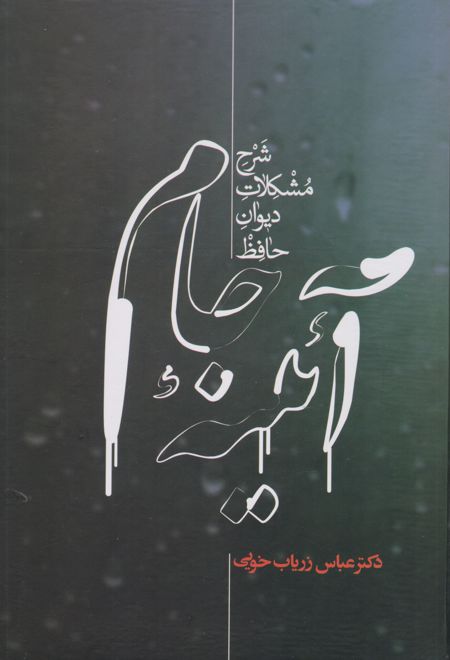 شَرْحِ
مُشْکِلاتِ
دیوانِ
حافِظْ
آئینهٔ
جام
دکتر عباس زریاب خویی